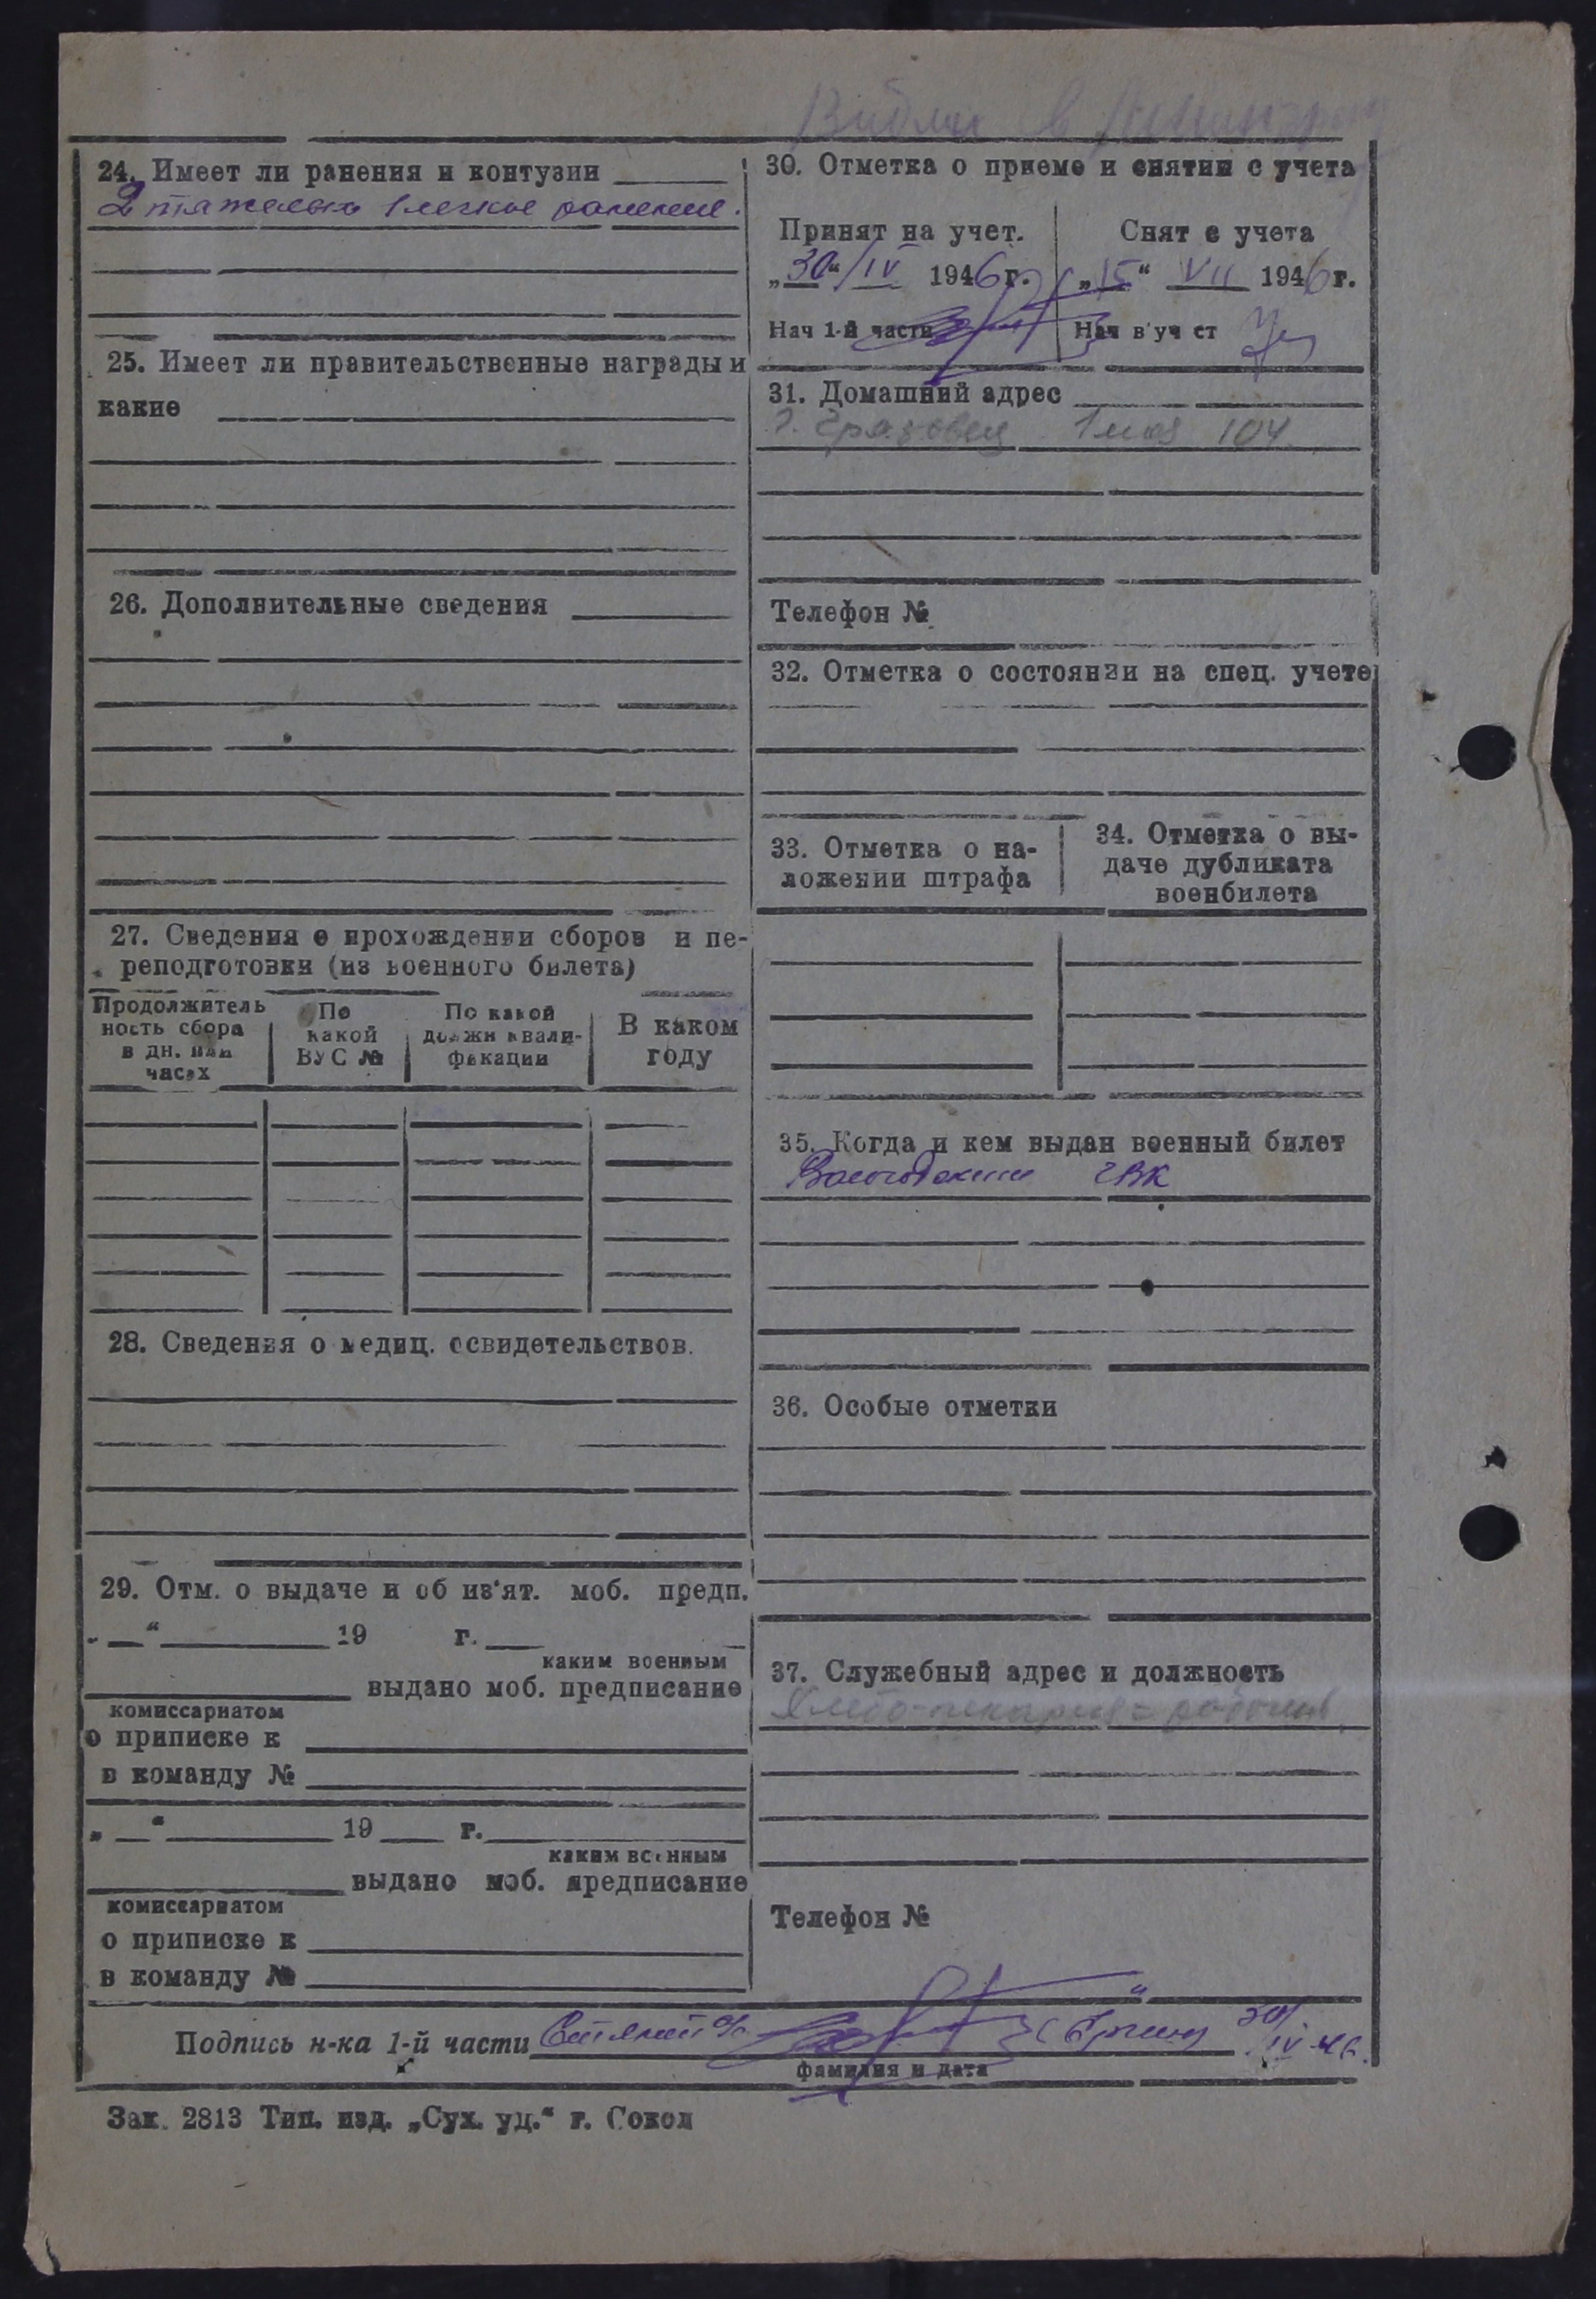 24. Имеет ли ранения и контузии
2 тяжелых 1 легкое ранение.
25. Имеет ли правительственные награды и
какие
26. Дополнительные сведения
27. Сведения о прохождении сборов и пе-
реподготовки (из военного билета)
Продолжитель
ность сбора
в дн. или
часах
По
какой
ВУС №
По какой
должн квали-
фикации
В каком
году
28. Сведения о медиц. освидетельствов.
29. Отм. о выдаче и об из'ят. моб. предп.
„ “ 19 г.
каким военным
выдано моб. предписание
комиссариатом
о приписке к
в команду №
„ “ 19 г.
каким военным
выдано моб. предписание
комиссариатом
о приписке к
в команду №
30. Отметка о приеме и снятии с учета
Принят на учет.
„30“ IV 1946 г.
Нач 1-й части
Снят с учета
„15“ VII 1946 г.
Нач в'уч ст
31. Домашний адрес
г. Грязовец 1 мая 104
Телефон №
32. Отметка о состоянии на спец. учете
33. Отметка о на-
ложении штрафа
34. Отметка о вы-
даче дубликата
военбилета
35. Когда и кем выдан военный билет
Вологодским ГВК
36. Особые отметки
37. Служебный адрес и должность
Хлебо-пекарня = рабочий
Телефон №
Подпись н-ка 1-й части 30/IV-46.
фамилия и дата
Зак. 2813 Тип. изд. „Сух. уд.“ г. Сокол